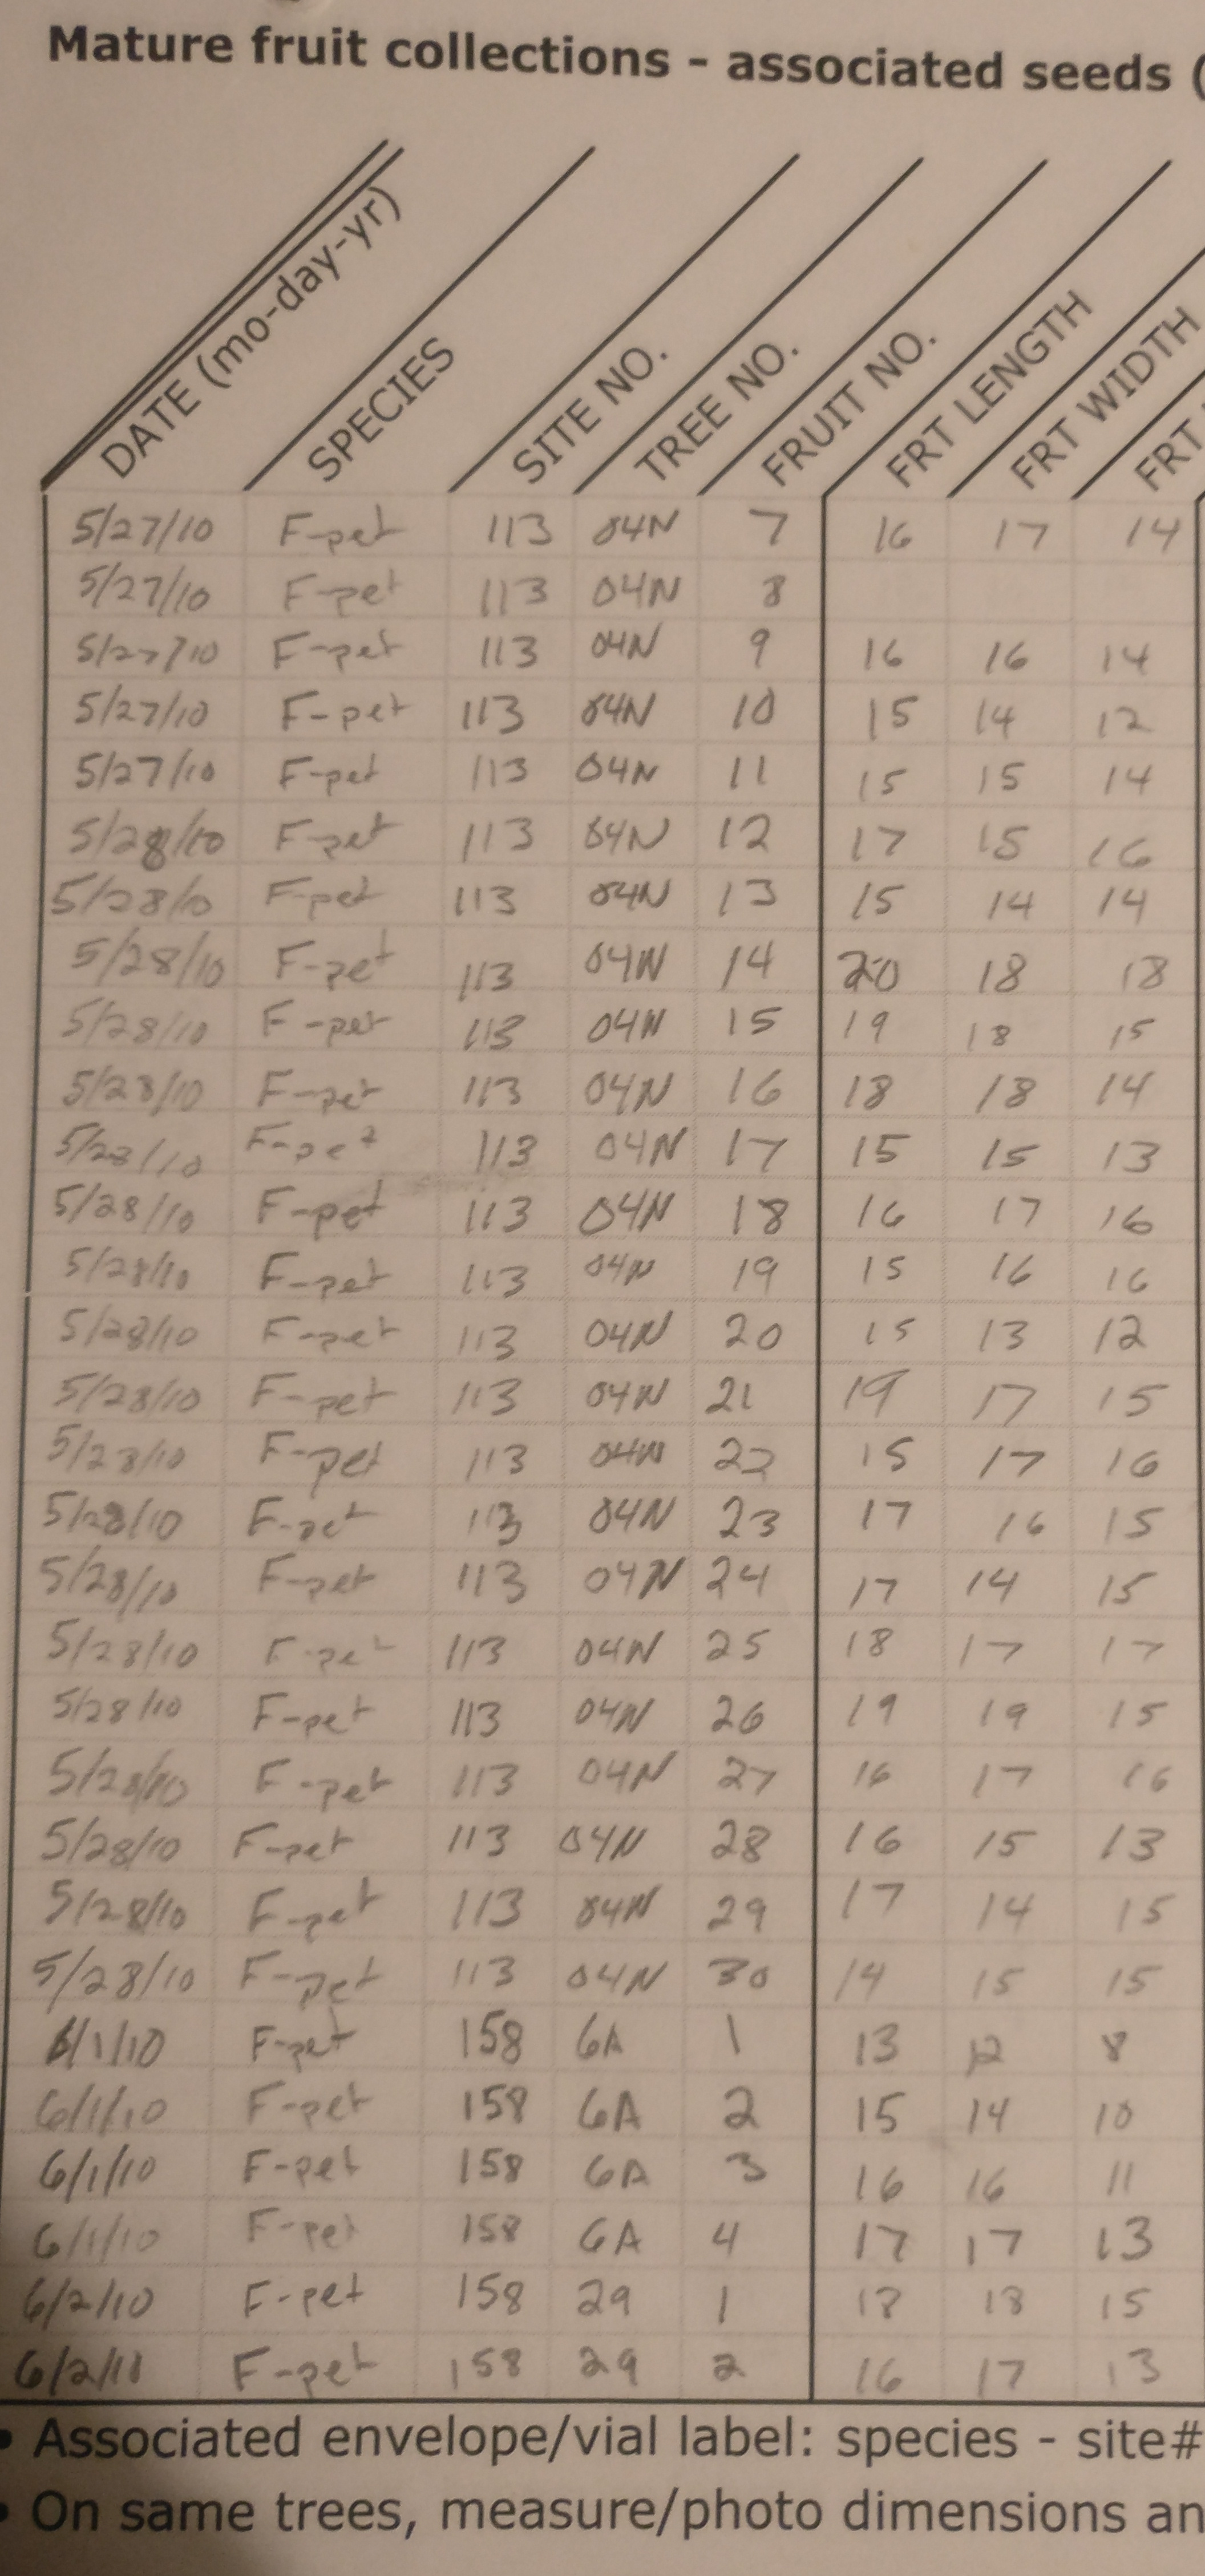 Mature fruit collections - associated seeds (
DATE (mo-day-yr) SPECIES SITE NO. TREE NO. FRUIT NO. FRT LENGTH FRT WIDTH FRT
5/27/10 F-pet 113 04N 7 16 17 14
5/27/10 F-pet 113 04N 8
5/27/10 F-pet 113 04N 9 16 16 14
5/27/10 F-pet 113 04N 10 15 14 12
5/27/10 F-pet 113 04N 11 15 15 14
5/28/10 F-pet 113 04N 12 17 15 16
5/28/10 F-pet 113 04N 13 15 14 14
5/28/10 F-pet 113 04N 14 20 18 18
5/28/10 F-pet 113 04N 15 19 18 15
5/28/10 F-pet 113 04N 16 18 18 14
5/28/10 F-pet 113 04N 17 15 15 13
5/28/10 F-pet 113 04N 18 16 17 16
5/28/10 F-pet 113 04N 19 15 16 16
5/28/10 F-pet 113 04N 20 15 13 12
5/28/10 F-pet 113 04N 21 19 17 15
5/28/10 F-pet 113 04N 22 15 17 16
5/28/10 F-pet 113 04N 23 17 16 15
5/28/10 F-pet 113 04N 24 17 14 15
5/28/10 F-pet 113 04N 25 18 17 17
5/28/10 F-pet 113 04N 26 19 19 15
5/28/10 F-pet 113 04N 27 16 17 16
5/28/10 F-pet 113 04N 28 16 15 13
5/28/10 F-pet 113 04N 29 17 14 15
5/28/10 F-pet 113 04N 30 14 15 15
6/1/10 F-pet 158 6A 1 13 12 8
6/1/10 F-pet 158 6A 2 15 14 10
6/1/10 F-pet 158 6A 3 16 16 11
6/1/10 F-pet 158 6A 4 17 17 13
6/2/10 F-pet 158 29 1 18 18 15
6/2/10 F-pet 158 29 2 16 17 13
• Associated envelope/vial label: species - site#
• On same trees, measure/photo dimensions an